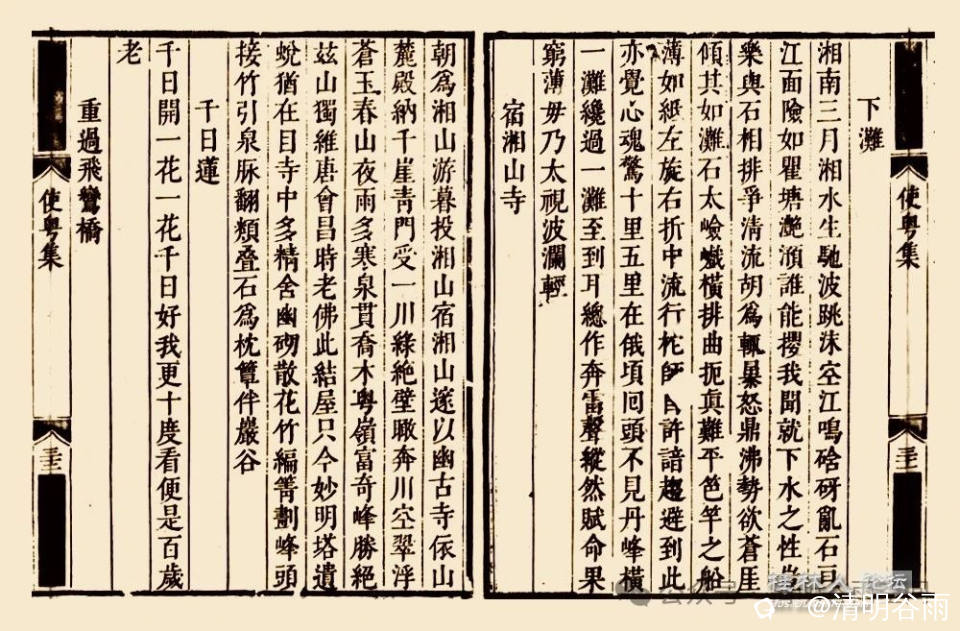 下灘
湘南三月湘水生馳波跳沫空江鳴硌砑亂石亘
江面險如瞿塘灧澦誰能攖我聞就下水之性
樂與石相排爭清流胡為輒暴怒鼎沸勢欲蒼崖
傾其如灘石太嶮巇橫排曲扼真難平笆竿之船
薄如紙左旋右折中流行柁師許諳趨避到此
亦覺心魂驚十里五里在俄頃回頭不見丹峰橫
一灘纔過一灘至到耳總作奔雷聲縱然賦命果
窮薄毋乃太視波瀾輕
宿湘山寺
使粵集
朝為湘山游暮投湘山宿湘山邃以幽古寺依山
麓殿納千崖青門受一川綠絶壁瞰奔川空翠浮
蒼玉春山夜雨多寒泉貫喬木粵嶺富奇峰勝絶
茲山獨維唐會昌時老佛此結屋只今妙明塔遺
蛻猶在目寺中多精舍幽砌散花竹編篬劃峰頭
接竹引泉脉翻頬叠石為枕簟伴巖谷
千日蓮
千日開一花一花千日好我更十度看便是百歲
老
重過飛鸞橋
使粵集
@清明谷雨